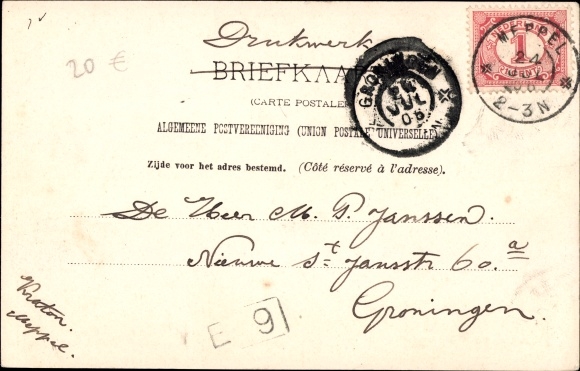 20 €
Drukwerk
BRIEFKAART
(CARTE POSTALE)
ALGEMEENE POSTVEREENIGING (UNION POSTALE UNIVERSELLE)
Zijde voor het adres bestemd. (Côté réservé à l'adresse).
GRONINGEN
JUL
MEPPEL
24
2-3N
1
De Heer M. P. Janssen.
Nieuwe St Jansstr 60.a
Groningen.
Meppel.
E 9